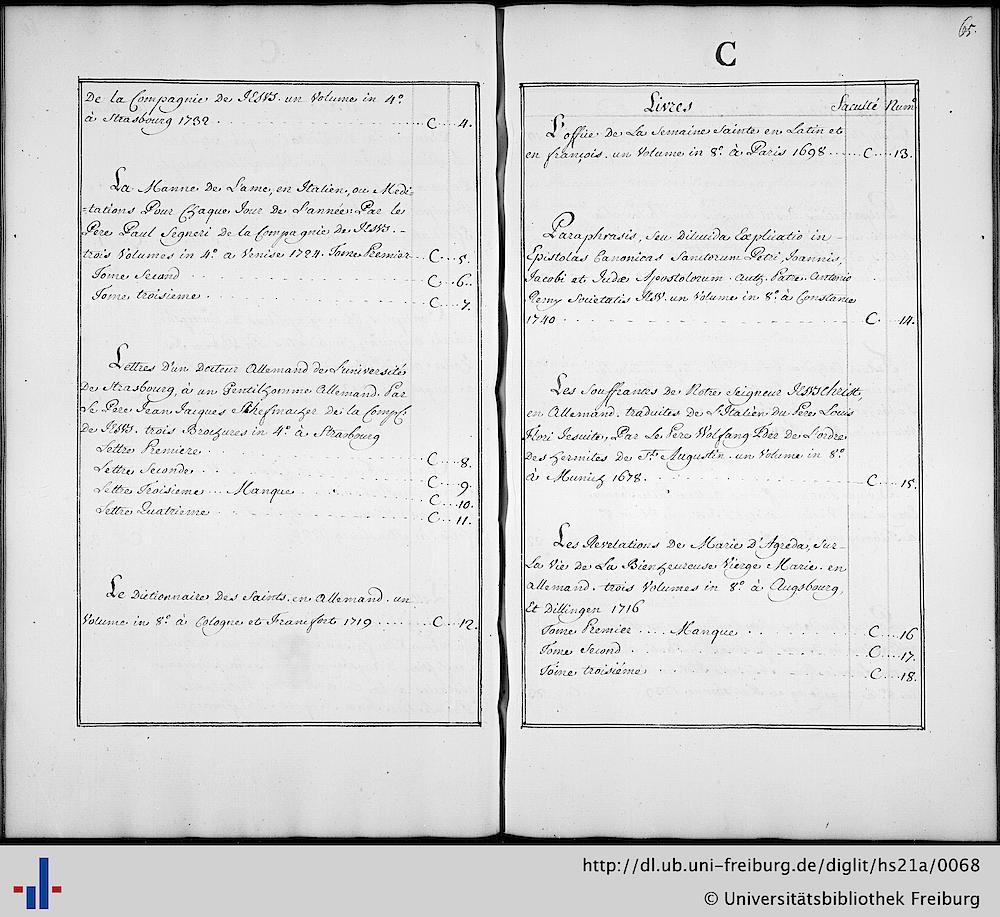 De la Compagnie de JESVS. un Volume in 4º
à Strasbourg 1732 . . . . . C . . . 4.
La Manne de L'ame, en Italien, ou Medi-
-tations Pour Chaque Jour de L'année. Par le
Pere Paul Segneri de la Compagnie de JESVS. -
trois Volumes in 4º a Venise 1724. Tome Premier . . C . . . 5.
Tome Second . . . . . C . . . 6.
Tome troisieme . . . . . C . . . 7.
Lettres D'un Docteur Allemand de L'université
De Strasbourg, à un Gentilhomme Allemand. Par
Le Pere Jean Jacques Scheffmacher de la Comp
de JESVS. trois Brochures in 4º à Strasbourg
Lettre Premiere . . . . . C . . . 8.
Lettre Seconde . . . . . C . . . 9.
Lettre Troisieme . . . Manque . . . . . C . . . 10.
Lettre Quatrieme . . . . . C . . . 11.
Le Dictionnaire Des Saints. en Allemand. un
Volume in 8º à Cologne et Francfort 1719 . . . . . C . . . 12.
65.
C
Livres Faculté Numº
L'office de La Semaine Sainte en Latin et
en françois. un Volume in 8º à Paris 1698 . . . . . C . . . 13.
Paraphrasis, Seu Dilucida Explicatio in -
Epistolas Canonicas Sanctorum Petri, Joannis,
Jacobi et Judæ Apostolorum. auth. Patre. Antonio
Remy Societatis JESV. un Volume in 8º à Constance
1740 . . . . . C . . . 14.
Les Souffrances de Notre Seigneur JESVSChrist,
en Allemand. traduites de L'Italien du Pere Louis
Flori Jesuite, Par Le Pere Wolfang Eder de L'ordre
Des hermites de St Augustin. un Volume in 8º
à Munich 1678. . . . . . C . . . 15.
Les Revelations De Marie D'Agreda, Sur -
La Vie de La Bienheureuse Vierge Marie. en
Allemand. trois Volumes in 8º à Augsbourg,
Et Dillingen 1716
Tome Premier . . . . Manque . . . . . C . . . 16
Tome Second . . . . . C . . . 17.
Tome troisiéme . . . . . C . . . 18.
http://dl.ub.uni-freiburg.de/diglit/hs21a/0068
© Universitätsbibliothek Freiburg